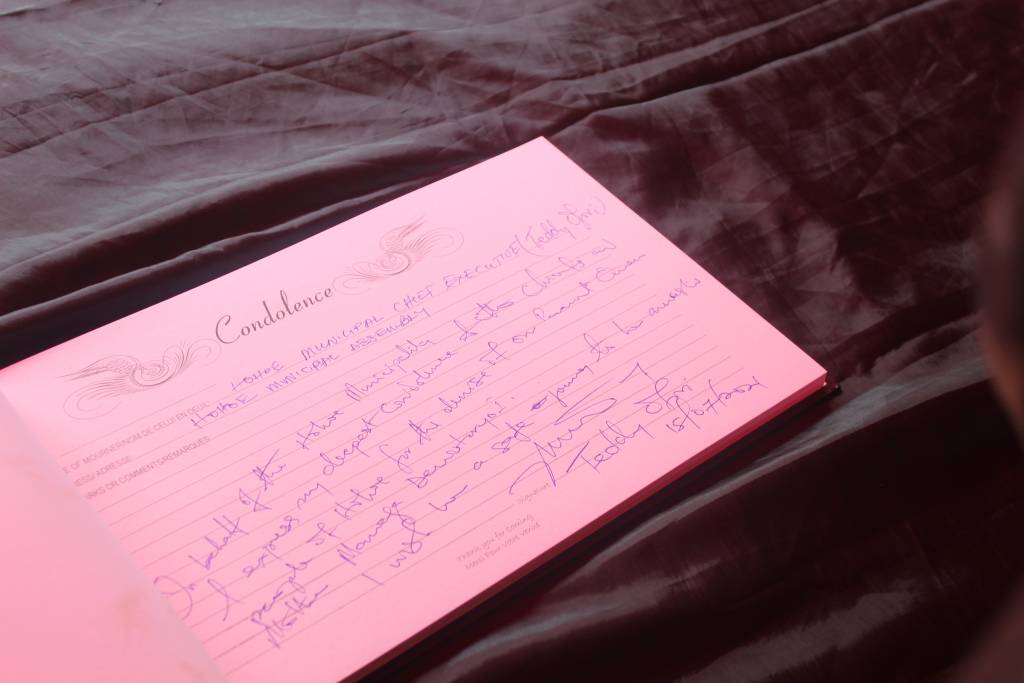 Condolence
E OF MOURNER/NOM DE CELUI EN DEUIL: HOHOE MUNICIPAL CHIEF EXECUTIVE (Teddy Ofori)
ESS/ ADRESSE: HOHOE MUNICIPAL ASSEMBLY
RKS OR COMMENTS/REMARQUES:
On behalf of the Hohoe Municipality the Chiefs and
I express my deepest Condolence
people of Hohoe for the demise of our Paramount Queen
Mother
I wish her a safe journey to her
Signature
Teddy Ofori
15/07/2021
Thank you for coming
Merci Pour Votre Venue